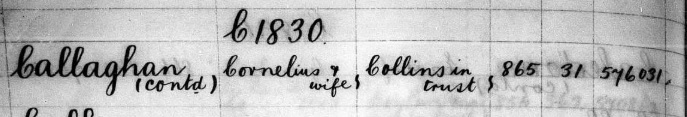 C1830.
Callaghan (contd) Cornelius & wife, Collins in trust, 865 31 576031.